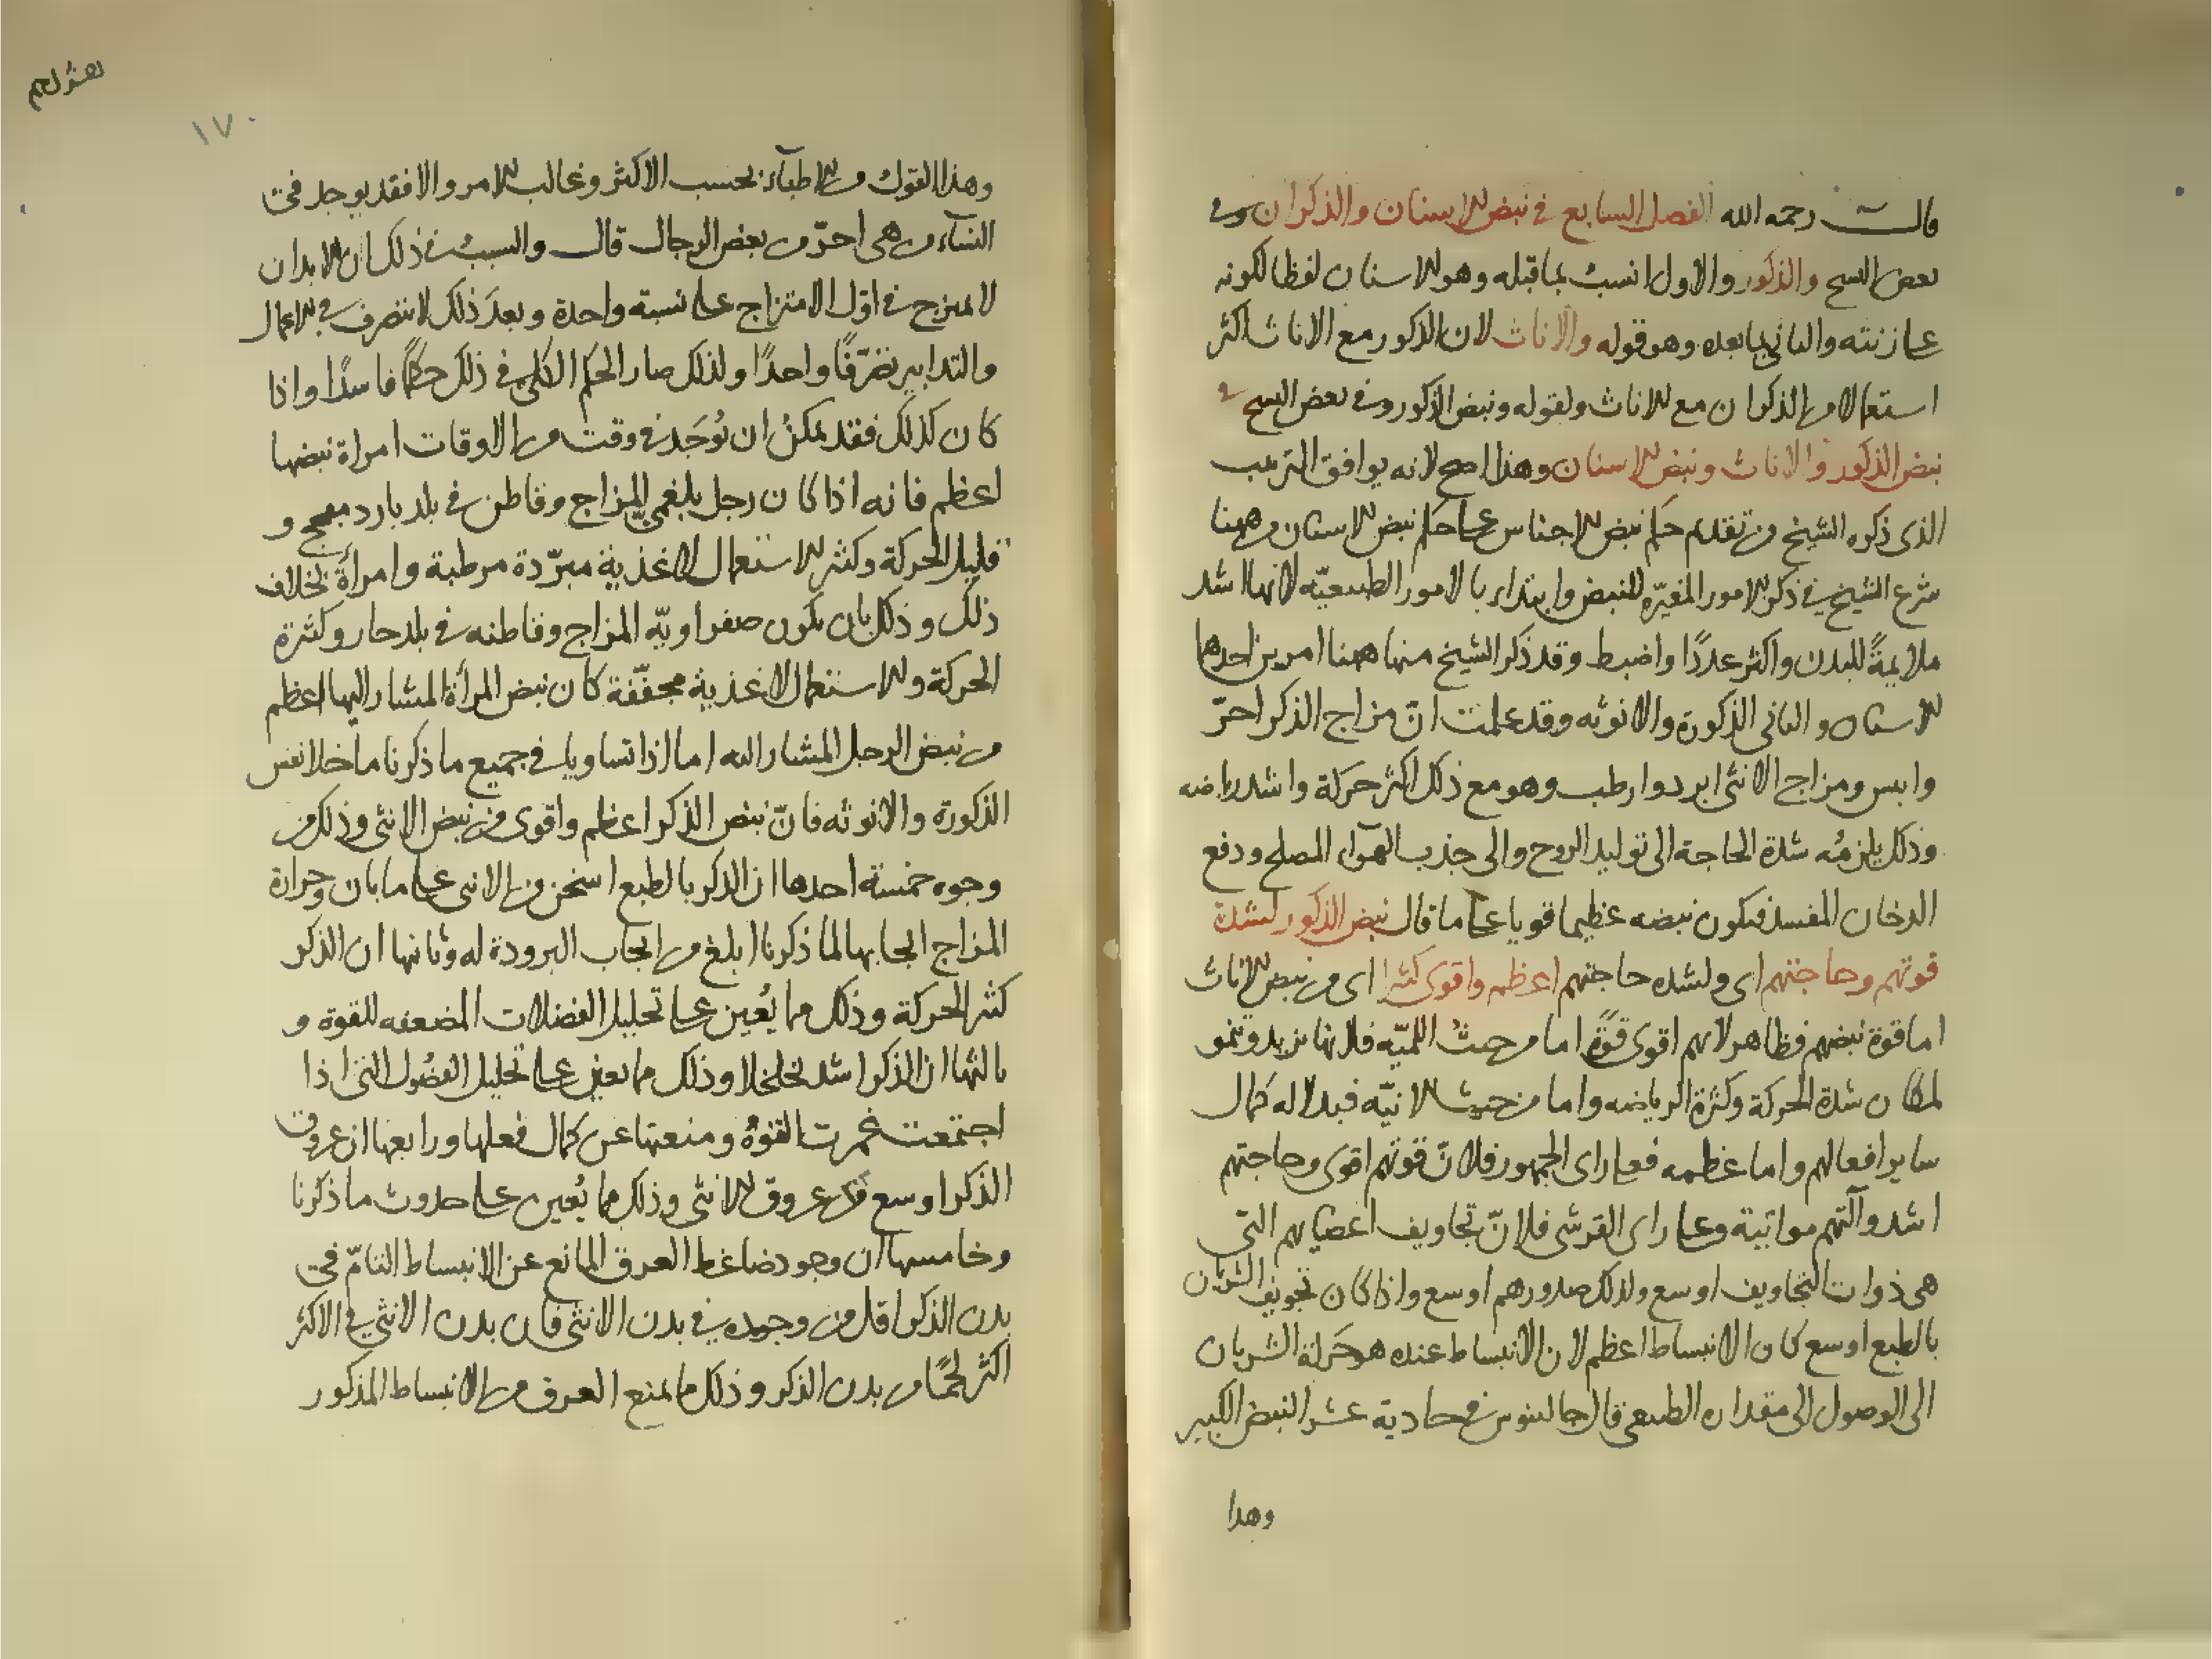 قال رحمه الله الفصل السابع في نبض الاسنان والذكران وفي
بعض النسخ والذكور والاول انسب بما قبله وهو الاسنان لفظا لكونه
على زنته والثاني بما بعده وهو قوله والاناث لان الذكور مع الاناث اكثر
استعمالا من الذكران مع الاناث ولقوله ونبض الذكور وفي بعض النسخ في
نبض الذكور والاناث ونبض الاسنان وهذا اصح لانه يوافق الترتيب
الذي ذكره الشيخ من تقدم حكم نبض الاجناس على حكم نبض الاسنان ومن هنا
شرع الشيخ في ذكر الامور المغيرة للنبض وابتداء بالامور الطبيعيّه لانها اشد
ملايمةً للبدن واكثر عددًا واضبط وقد ذكر الشيخ منها ههنا امرين احدهما
الاسنان والثاني الذكورة والانوثه وقد علمت انّ مزاج الذكر احرّ
وايبس ومزاج الانثى ابرد وارطب وهو مع ذلك اكثر حركة واشد رياضه
وذلك يلزمُه شدة الحاجة الى توليد الروح والى جذب الهوآء المصلح ودفع
الدخان المفسد فيكون نبضه عظيما قويا على ما قال نبض الذكور لشدة
قوتهم وحاجتهم اى ولشده حاجتهم اعظم واقوى كثيرا اى من نبض الاناث
اما قوة نبضهم فظاهر لانهم اقوى قوّةً اما من حيثُ اللميّه فلانها تزيد وتنمو
لمكان شدة الحركة وكثرة الرياضه واما من حيث الانيّه فبدلاله كمال
ساير افعالهم واما عظمه فعلى راى الجمهور فلانّ قوتهم اقوى وحاجتهم
اشد وآلتهم مواتية وعلى راى القرشى فلانّ تجاويف اعضايهم التى
هى ذوات التجاويف اوسع ولذلك صدورهم اوسع واذا كان تجويف الشريان
بالطبع اوسع كان الانبساط اعظم لان الانبساط عنده هو حركة الشريان
الى الوصول الى مقداره الطبيعى قال جالينوس في حادية عشر النبض الكبير
وهذا
١٧٠
وهذا القول من الاطبآء بحسب الاكثر وغالب الامر والا فقد يوجد فى
النسآء من هى احرّ من بعض الرجال قال والسبب في ذلك ان الابدان
لا تمتزج في اوّل الامتزاج على نسبة واحدة وبعدَ ذلك لا تتصرف في الاعمال
والتدابير تصَرّفًا واحدًا ولذلك صار الحكم الكلى في ذلك حكمًا فاسدًا واذا
كان كذلك فقد يمكنُ ان توُجَد في وقت من الاوقات امراة نبضها
اعظم فانه اذا كان رجل بلغمىّ المزاج وقاطن في بلد بارد و
قليل الحركة وكثير الاستعمال لاغذية مبرّدة مرطبة وامرأة بخلاف
ذلك وذلك بان يكون صفراويّه المزاج وقاطنه في بلد حار وكثرة
الحركة والاستعمال لاغذية مجفّفة كان نبض المرأة المشار اليها اعظم
من نبض الرجل المشار اليه اما اذا تساويا في جميع ما ذكرنا ما خلا نفس
الذكورة والانوثه فانّ نبض الذكر اعظم واقوى من نبض الانثى وذلك من
وجوه خمسة احدها ان الذكر بالطبع اسخن من الانثى على ما بان وحرارة
المزاج ايجابها لما ذكرنا ابلغ من ايجاب البرودة له وثانيها ان الذكر
كثير الحركة وذلك مما يُعين على تحليل الفضلات المضعفه للقوة و
ثالثها ان الذكر اشد تخلخلا وذلك مما يعين على تحليل الفضُول التى اذا
اجتمعت غمرت القوةُ ومنعتها عن كمال فعلها ورابعها ان عروق
الذكر اوسع من عروق الانثى وذلك مما يُعين على حدوث ما ذكرنا
وخامسها ان وجود ضاغط العرق المانع عن الانبساط التامّ فى
بدن الذكر اقل من وجوده في بدن الانثى فان بدن الانثى في الاكثر
اكثر لحمًا من بدن الذكر وذلك مما يمنع العرق من الانبساط المذكور